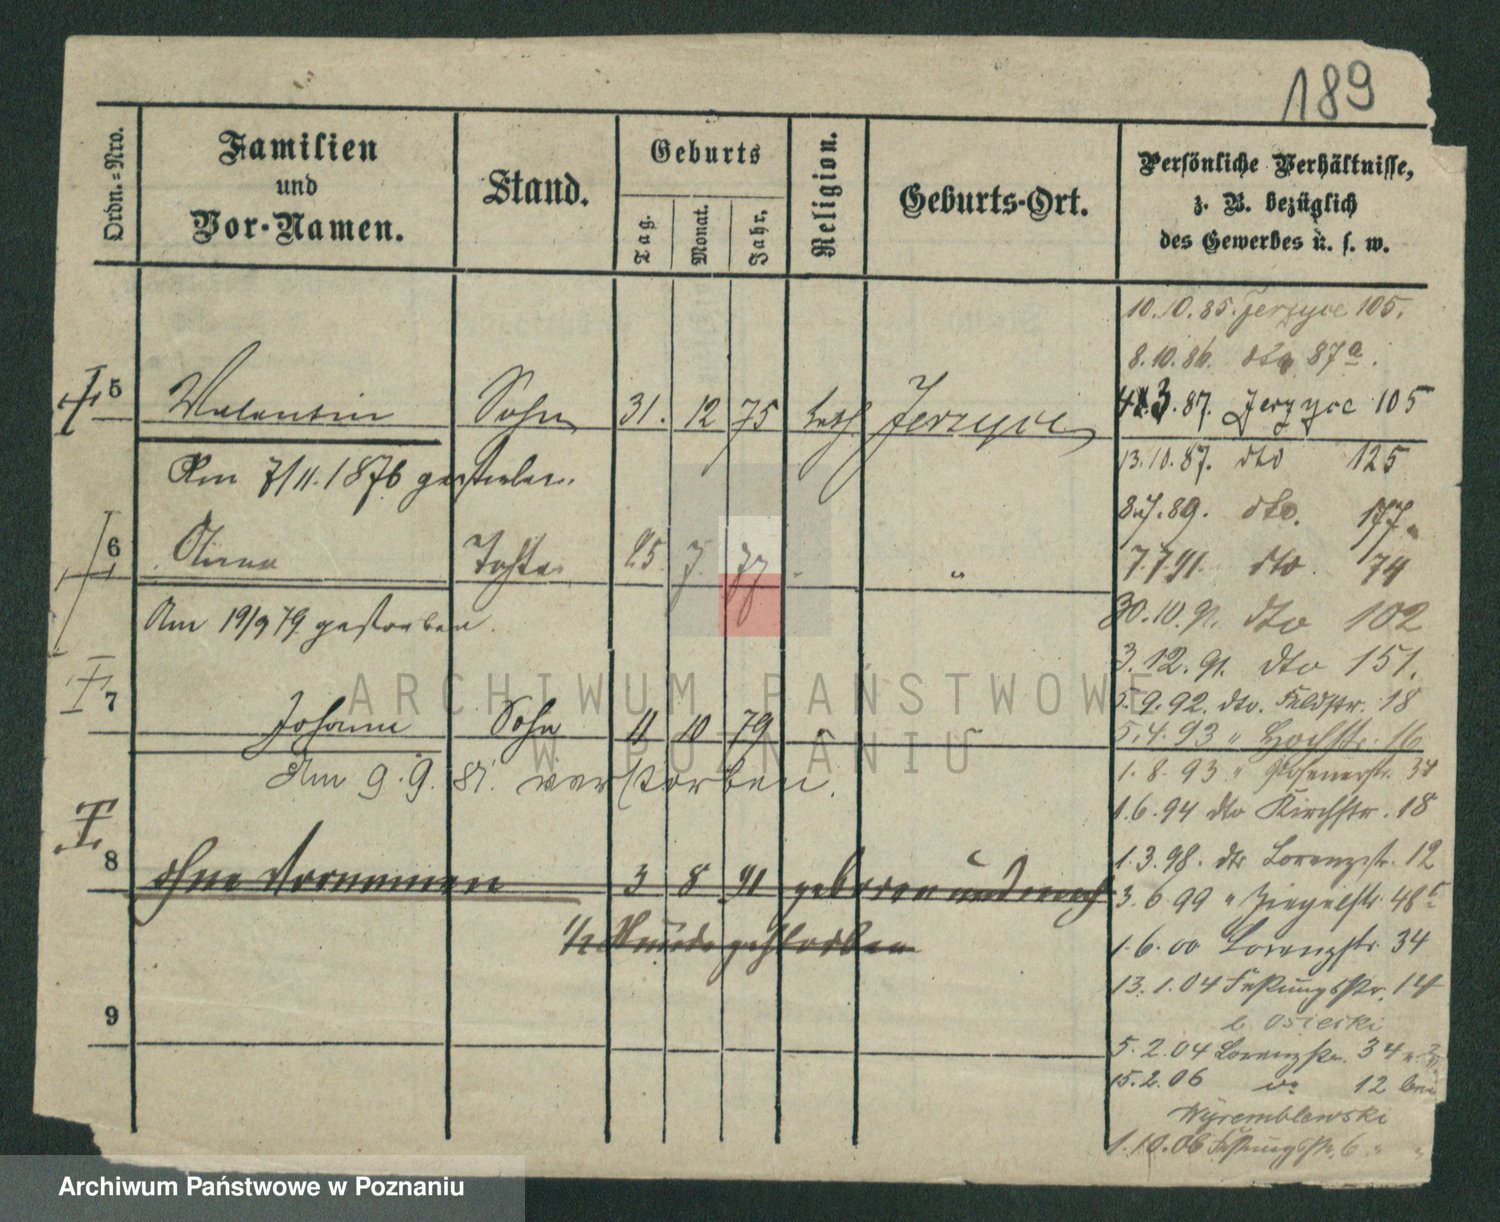 189
Ordn.=Nro.
Familien
und
Vor-Namen.
Stand.
Geburts
Tag.
Monat.
Jahr.
Religion.
Geburts-Ort.
Persönliche Verhältnisse,
z. B. bezüglich
des Gewerbes u. s. w.
10.10.85. Jerzyce 105.
8.10.86. dto 87a.
5 Valentin Sohn 31. 12 75 kath Jerzyce
3.87. Jerzyce 105
Am 7/11.1876 gestorben.
13.10.87. dto 125
8.7.89. dto. 177.
6 Anna Tochter 25. 7. 77 "
7.7.91. dto. 74
Am 19/9 79 gestorben.
30.10.91. dto 102
3.12.91. dto 151.
5.9.92. dto. Feldstr. 18
7 Johann Sohn 11 10 79 "
5.4.93 " Hochstr. 16
Am 9.9.81. verstorben.
1.8.93 " Posenerstr. 34
1.6.94 dto Kirchstr. 18
8 ohne Vornamen 3 8 91 geboren und nach
1.3.98. dto Lorenzstr. 12
3.6.99 " Ziegelstr. 48
1/2 Stunde gestorben
1.6.00 Lorenzstr. 34
13.1.04 Festungsstr. 14
b. Osierki
9
5.2.04 Lorenzstr. 34
15.2.06 do 12 bei
Wyremblewski
1.10.06 Festungsstr. 6
ARCHIWUM PAŃSTWOWE
W POZNANIU
Archiwum Państwowe w Poznaniu